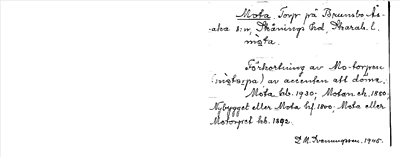 Mota. Torp på Brunsbo Äs-
aka s:n, Skånings hd, Skarab. l.
mota.
Förkortning av Mo-torpen
(motorpa) av accenten att döma.
Mota hb. 1930; Motan ek. 1880;
Nybygget eller Mota hf. 1800; Mota eller
Motorpet hb. 1892.
D. M. Svenungsson. 1945.